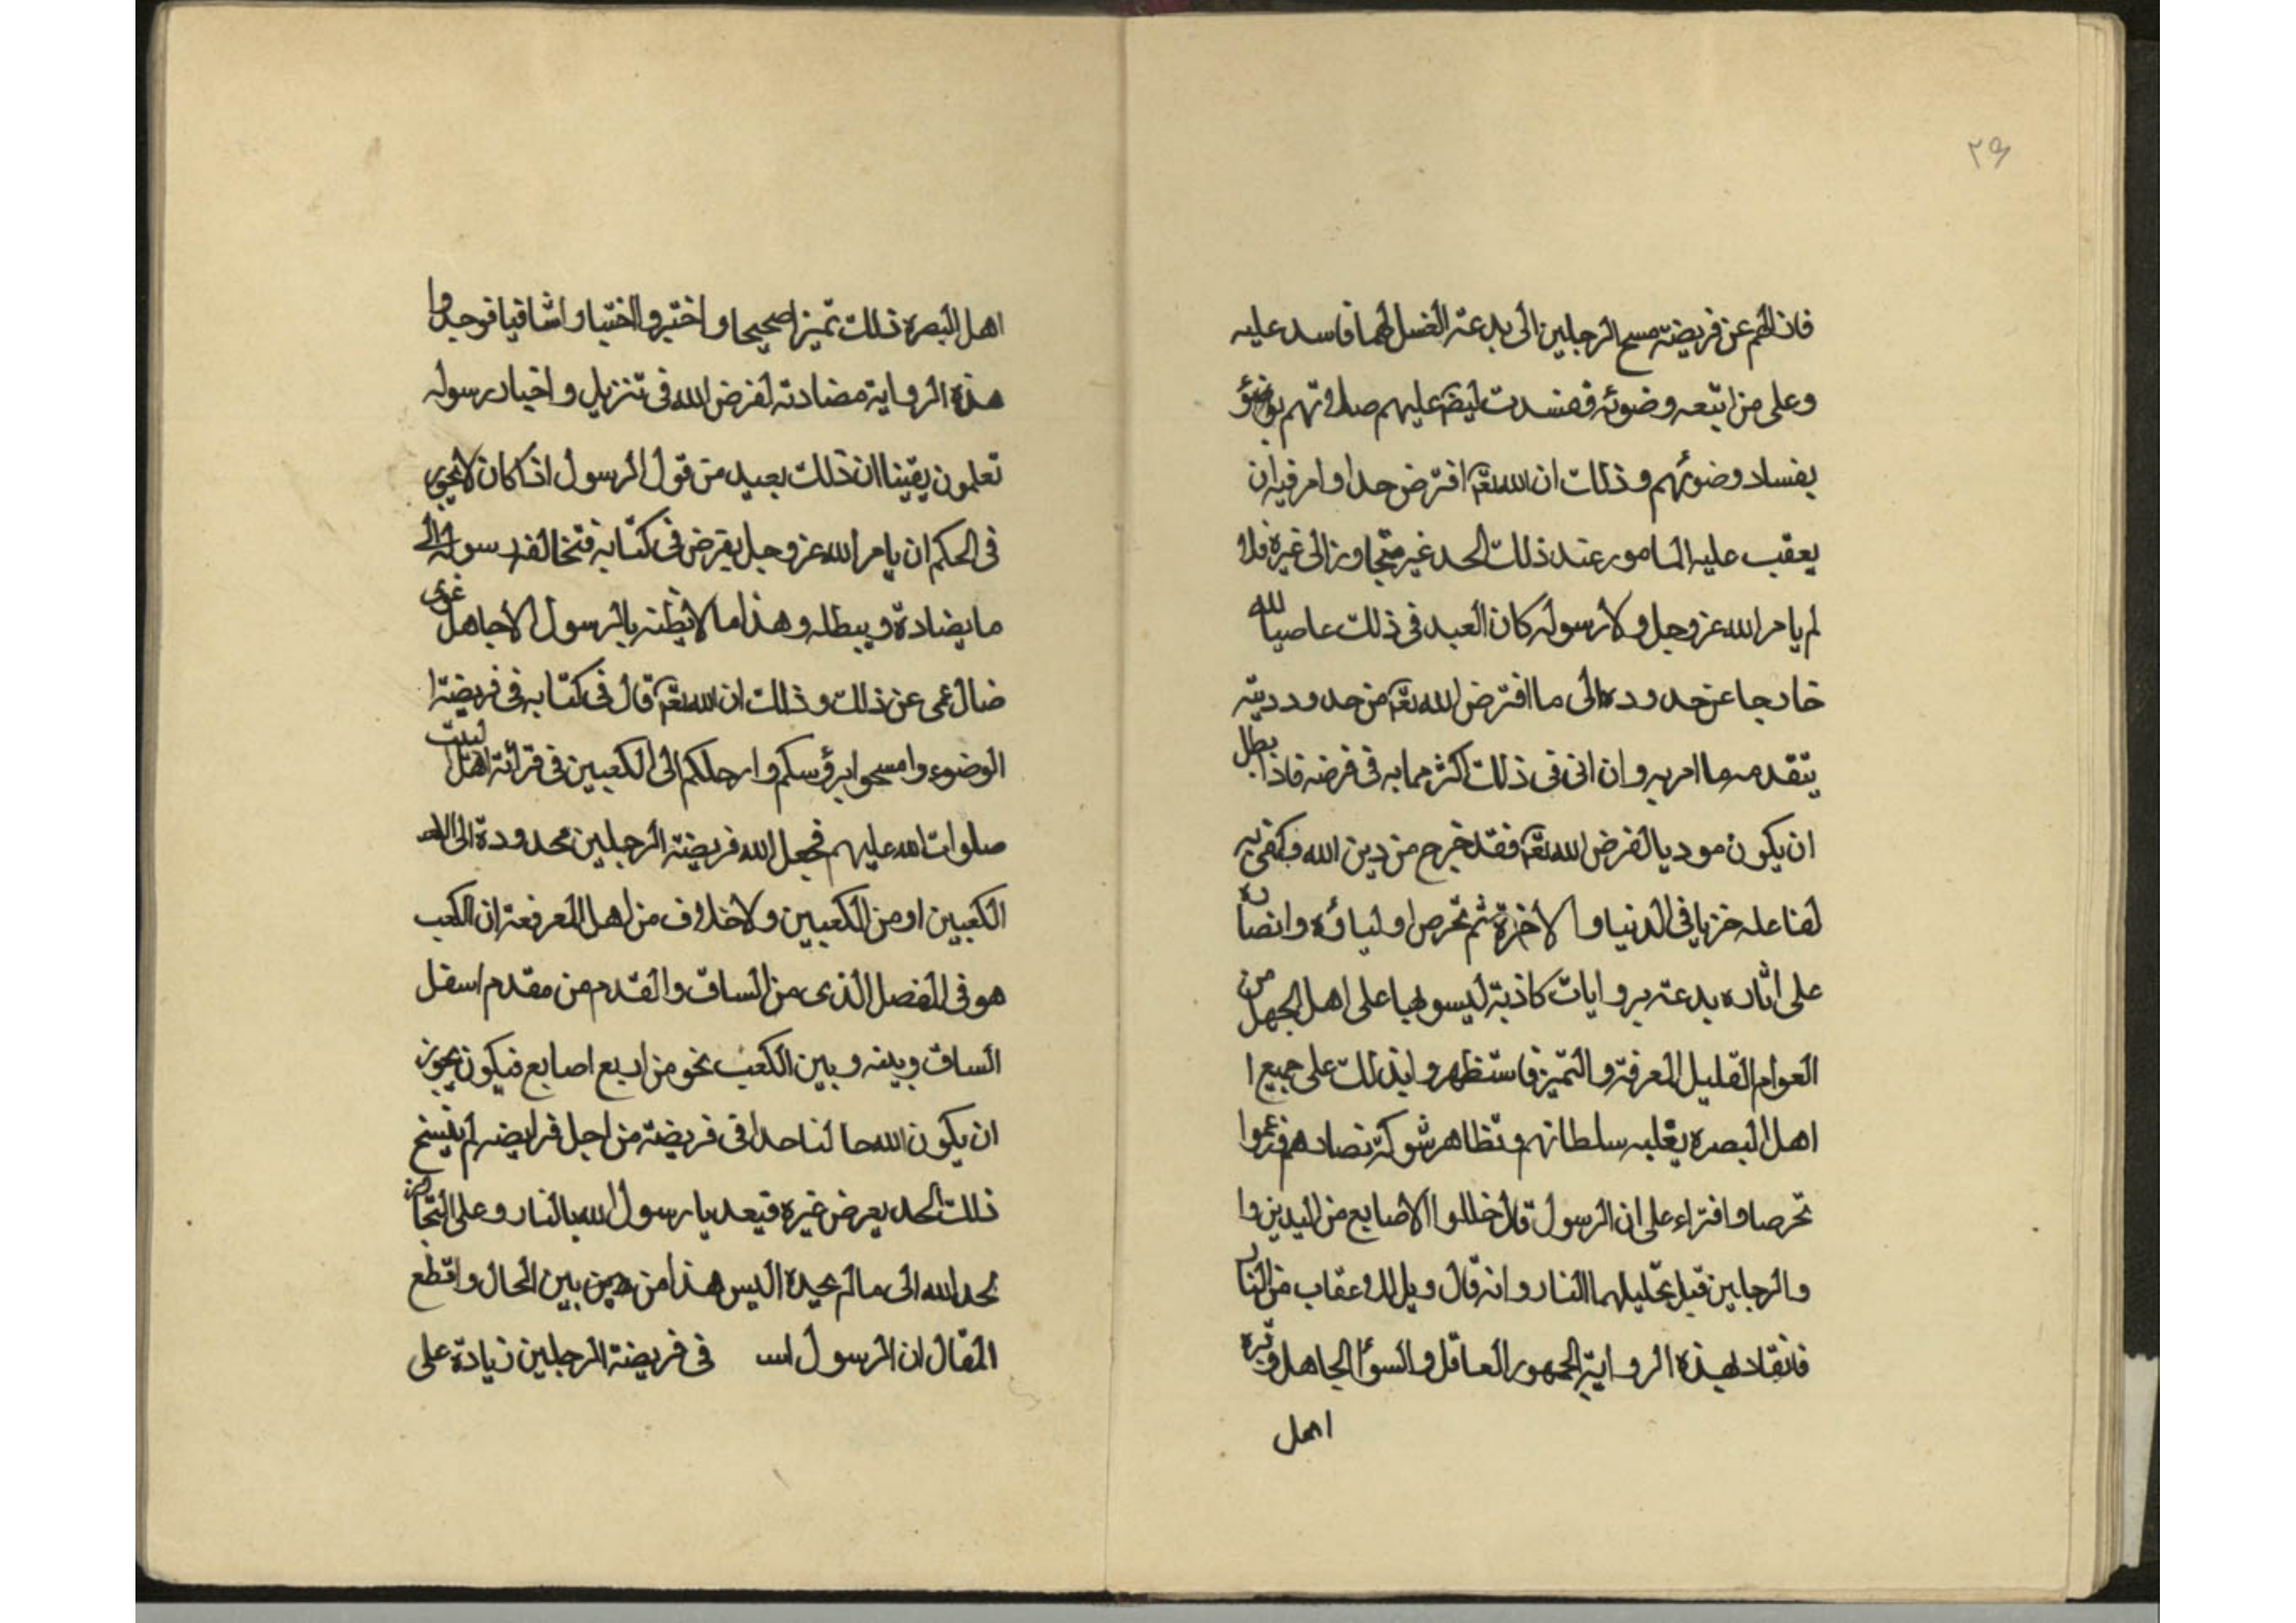 ٢٩
فازالهم عن فريضة مسح الرجلين الى بدعة الغسل لهما فاسد عليه
وعلى من اتبعه وضوئه ففسدت ليضم عليهم صلاتهم بوضوؤ
بفساد وضوئهم وذلك ان الله تعّ افترض حدا وامر فيه ان
يعقب عليه المامور عند ذلك الحد غير متجاوز الى غيره فلا
لم يامر الله عز وجل ولا رسوله كان العبد فى ذلك عاصيا لله
خارجا عن حدوده الى ما افترض الله تعّ من حدود دينه
يتقدمه ما امر به وان اتى فى ذلك اكثر مما به فى فرضه فاذا بطل
ان يكون موديا لفرض الله تعّ فقد خرج من دين الله وكفى به
لفاعله خزيا فى الدنيا والاخرة ثم تخرص اوليائه وانصاره
على اثاره بدعته بروايات كاذبة ليسو بها على اهل الجهل من
العوام القليل المعرفة والتميز فاستظهروا بذلك على جميع ا
اهل البصره بغلبه سلطانهم وتظاهر شوكة نصادهم فزعموا
تخرصا وافتراء على ان الرسول قال خللوا الاصابع من اليدين وا
والرجلين قبل تخليلهما النار وانه قال ويل للاعقاب من النار
فانقاد لهذه الرواية الجمهور العاقل والسوا الجاهل وتره
اهل
اهل البصره ذلك تميزا صحيحا واختبروا اختبارا شافيا فوجدوا
هذه الرواية مضادته لفرض الله فى تنزيل واخبار رسوله
تعلمون يقينا ان ذلك بعيد من قول الرسول اذا كان لا يجوز
فى الحكم ان يامر الله عز وجل بفرض فى كتابه فتخالفه رسوله الى
ما يضادة ويبطله وهذا ما لا يظنه بالرسول الا جاهل غوى
ضال عمى عن ذلك وذلك ان الله تعّ قال فى كتابه فى فريضة ا
الوضوء وامسحوا برؤسكم وارجلكم الى الكعبين فى قرائة اهل البيت
صلوات الله عليهم فجعل الله فريضة الرجلين محدودة الى الله
الكعبين او من الكعبين ولا خلاف من اهل المعرفعة ان الكعب
هو فى المفصل الذى من الساق والقدم من مقدم اسفل
الساق وبينه وبين الكعب نحو من اربع اصابع فيكون يجوز
ان يكون الله حا لنا حدا فى فريضة من اجل فرايضه لم ينسخ
ذلك الحد بعرض غيره فيعد يا رسول الله بالنار وعلى التجاوز
لحد الله الى ما لم يحده اليس هذا من مبين بين المحال واقطع
المقال ان الرسول اس فى فريضة الرجلين زيادة على